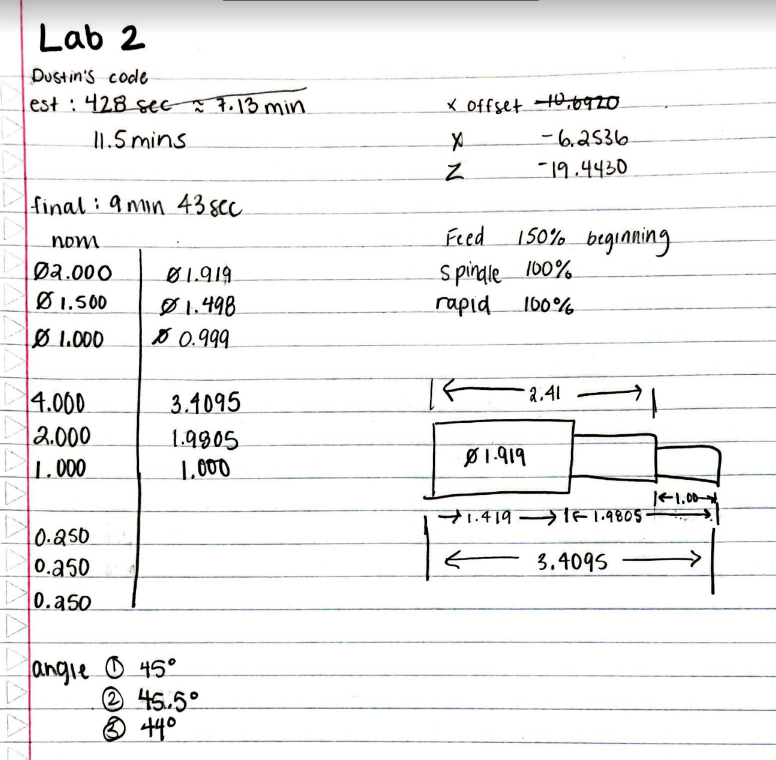 Lab 2
Dustin's code
est : 428 sec ≈ 7.13 min
11.5 mins
x offset -10.6920
X -6.2536
Z -19.4430
final : 9 min 43 sec
Feed 150% beginning
spindle 100%
rapid 100%
nom
Ø2.000 Ø1.919
Ø1.500 Ø1.498
Ø1.000 Ø0.999
4.000 3.4095
2.000 1.9805
1.000 1.000
0.250
0.250
0.250
2.41
Ø1.919
1.00
1.419 1.9805
3.4095
angle ① 45°
② 45.5°
③ 44°